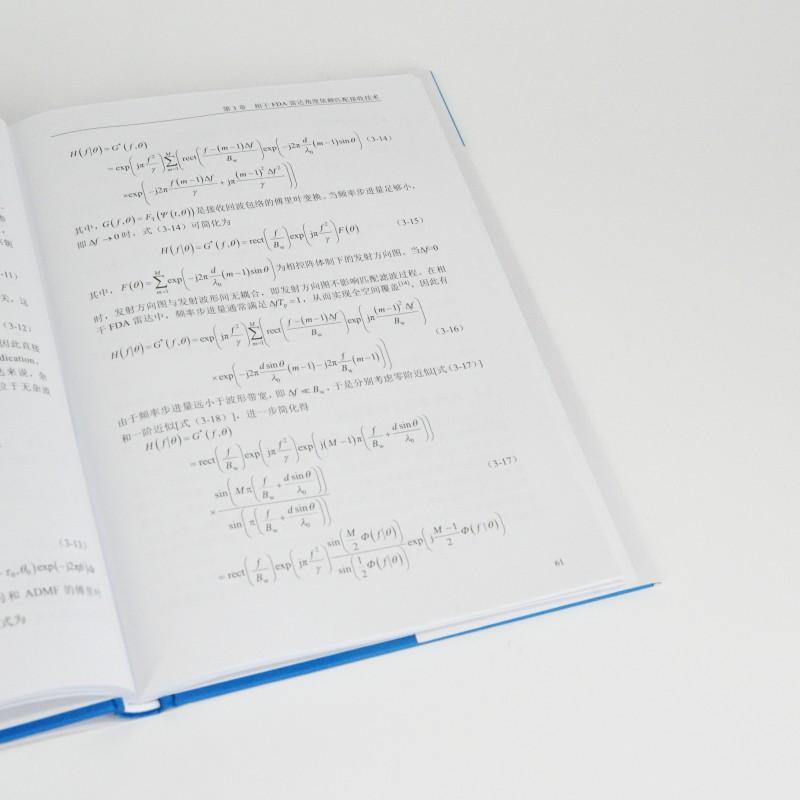 -11)
关，这
(3-12)
因此直接
dication,
达来说，杂
位于无杂波
(3-13)
和 ADMF 的傅里叶
式为
第 3 章 相干 FDA 雷达角度依赖匹配接收技术
H(f|θ)=G*(f,θ)
=exp(jπ f²/γ) ∑_{m=1}^{M} (rect((f−(m−1)Δf)/B_w) exp(−j2π d/λ₀ (m−1)sinθ) (3-14)
×exp(−j2π f(m−1)Δf/γ + jπ (m−1)²Δf²/γ))
其中，G(f,θ)=F_t(Ψ(t,θ))是接收回波包络的傅里叶变换。当频率步进量足够小，
即 Δf→0 时，式（3-14）可简化为
H(f|θ)=G*(f,θ)=rect(f/B_w) exp(jπ f²/γ) F(θ) (3-15)
其中，F(θ)=∑_{m=1}^{M} exp(−j2π d/λ₀ (m−1)sinθ) 为相控阵体制下的发射方向图。当Δf=0
时，发射方向图与发射波形间无耦合，即发射方向图不影响匹配滤波过程。在相
干 FDA 雷达中，频率步进量通常满足 ΔfT_p=1，从而实现全空间覆盖[14]，因此有
H(f|θ)=G*(f,θ)=exp(jπ f²/γ) ∑_{m=1}^{M} (rect((f−(m−1)Δf)/B_w) exp(jπ (m−1)²Δf/B_w)
×exp(−j2π dsinθ/λ₀ (m−1)−j2π f/B_w (m−1))) (3-16)
由于频率步进量远小于波形带宽，即 Δf ≪ B_w，于是分别考虑零阶近似[式（3-17）]
和一阶近似[式（3-18）]，进一步简化得
H(f|θ)=G*(f,θ)
=rect(f/B_w) exp(jπ f²/γ) exp(j(M−1)π(f/B_w + dsinθ/λ₀))
×sin(Mπ(f/B_w + dsinθ/λ₀))/sin(π(f/B_w + dsinθ/λ₀)) (3-17)
=rect(f/B_w) exp(jπ f²/γ) sin(M/2 Φ(f|θ))/sin(1/2 Φ(f|θ)) exp(j (M−1)/2 Φ(f|θ))
61